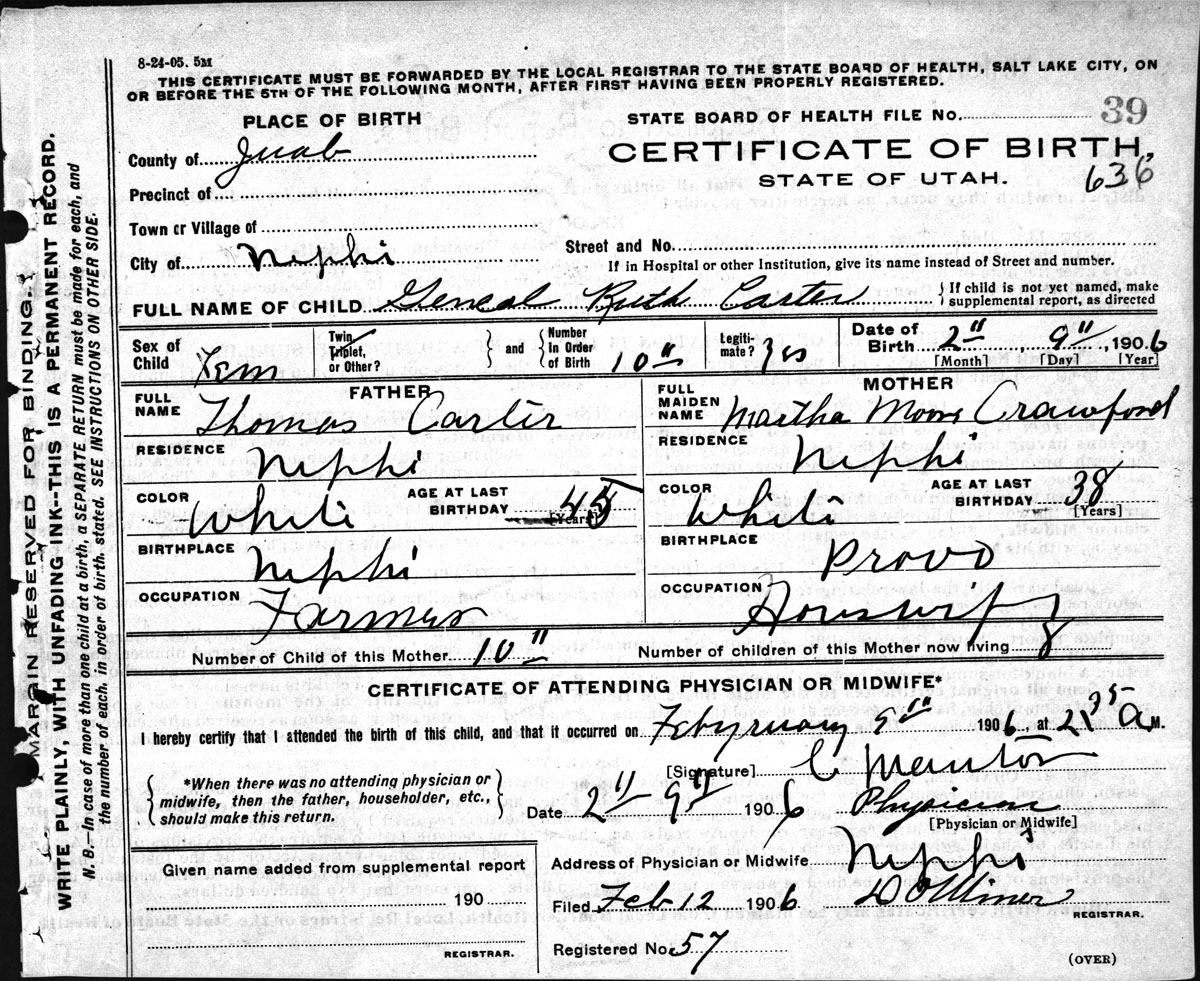 8-24-05. 5M
THIS CERTIFICATE MUST BE FORWARDED BY THE LOCAL REGISTRAR TO THE STATE BOARD OF HEALTH, SALT LAKE CITY, ON
OR BEFORE THE 5TH OF THE FOLLOWING MONTH, AFTER FIRST HAVING BEEN PROPERLY REGISTERED.
MARGIN RESERVED FOR BINDING.
WRITE PLAINLY, WITH UNFADING INK--THIS IS A PERMANENT RECORD.
N. B.--In case of more than one child at a birth, a SEPARATE RETURN must be made for each, and
the number of each, in order of birth, stated. SEE INSTRUCTIONS ON OTHER SIDE.
PLACE OF BIRTH
STATE BOARD OF HEALTH FILE No. 39
County of Juab
CERTIFICATE OF BIRTH,
STATE OF UTAH. 636
Precinct of
Town or Village of
Street and No.
City of Nephi
If in Hospital or other Institution, give its name instead of Street and number.
FULL NAME OF CHILD Geneal Ruth Carter
If child is not yet named, make
supplemental report, as directed
Sex of Child Fem
Twin, Triplet, or Other?
and
Number In Order of Birth 10"
Legiti- mate? yes
Date of Birth 2" 9", 1906
[Month] [Day] [Year]
FATHER
FULL NAME Thomas Carter
MOTHER
FULL MAIDEN NAME Martha Moore Crawford
RESIDENCE Nephi
RESIDENCE Nephi
COLOR White
AGE AT LAST BIRTHDAY 45 [Years]
COLOR White
AGE AT LAST BIRTHDAY 38 [Years]
BIRTHPLACE Nephi
BIRTHPLACE Provo
OCCUPATION Farmer
OCCUPATION Housewife
Number of Child of this Mother 10"
Number of children of this Mother now living 8
CERTIFICATE OF ATTENDING PHYSICIAN OR MIDWIFE*
I hereby certify that I attended the birth of this child, and that it occurred on Febyruary 9", 1906, at 2 35 A M.
*When there was no attending physician or
midwife, then the father, householder, etc.,
should make this return.
[Signature] C
Date 2" 9" 1906 Physician
[Physician or Midwife]
Given name added from supplemental report
190
REGISTRAR.
Address of Physician or Midwife Nephi
Filed Feb 12 1906
REGISTRAR.
Registered No. 57
(OVER)